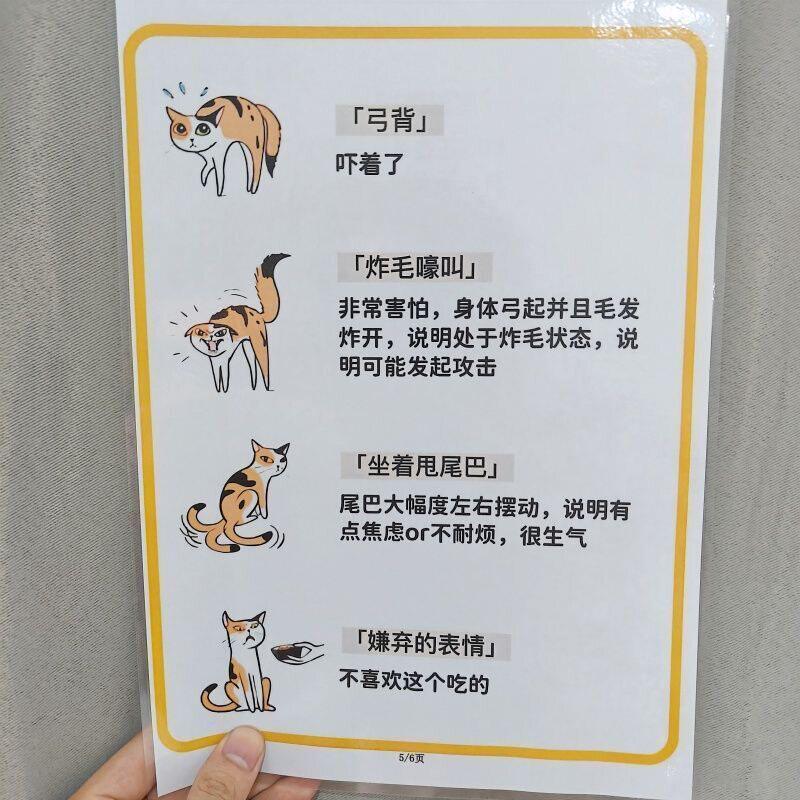 「弓背」
吓着了
「炸毛嚎叫」
非常害怕，身体弓起并且毛发
炸开，说明处于炸毛状态，说
明可能发起攻击
「坐着甩尾巴」
尾巴大幅度左右摆动，说明有
点焦虑or不耐烦，很生气
「嫌弃的表情」
不喜欢这个吃的
5/6页